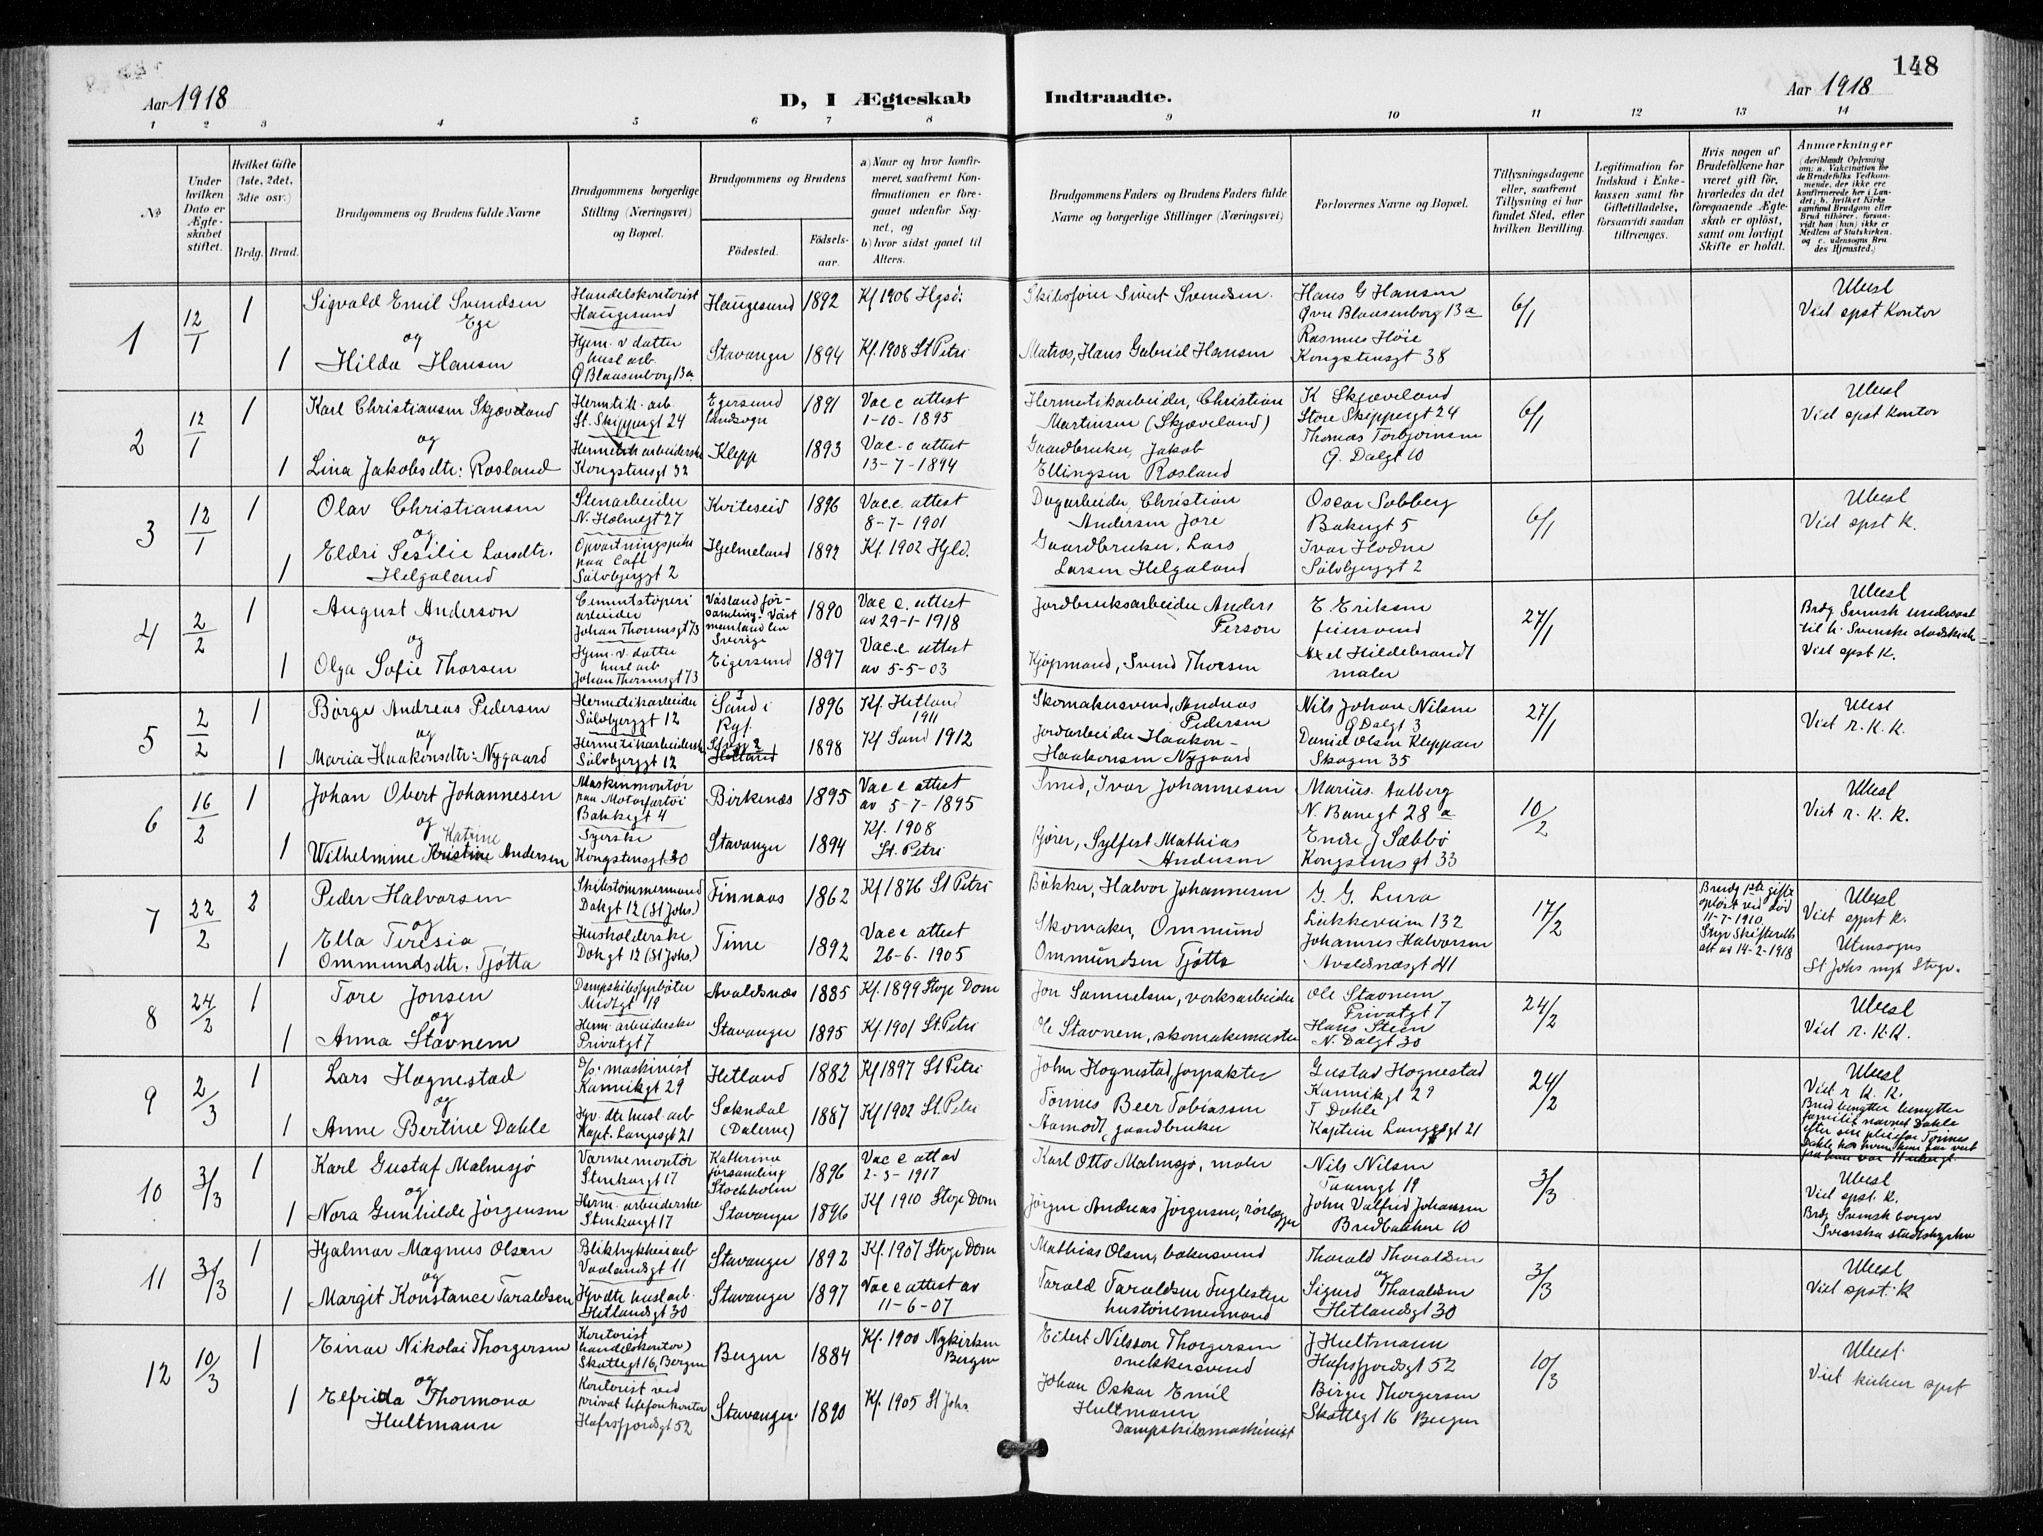 148
Aar 1918
D, I Ægteskab
Indtraadte.
Aar 1918
1 2 3 4 5 6 7 8 9 10 11 12 13 14
No
Under hvilken Dato er Ægteskabet stiftet.
Hvilket Gifte (1ste, 2det, 3die osv.)
Brdg. Brud.
Brudgommens og Brudens fulde Navne
Brudgommens borgerlige Stilling (Næringsvei) og Bopæl.
Brudgommens og Brudens
Fødested.
Fødsels-aar.
a) Naar og hvor konfirmeret, saafremt Konfirmationen er foregaaet udenfor Sognet, og
b) hvor sidst gaaet til Alters.
Brudgommens Faders og Brudens Faders fulde Navne og borgerlige Stillinger (Næringsvei)
Forlovernes Navne og Bopæl.
Tillysningsdagene eller, saafremt Tillysning ei har fundet Sted, efter hvilken Bevilling.
Legitimation for Indskud i Enkekassen samt for Giftetilladelse, forsaavidt saadan tiltrænges.
Hvis nogen af Brudefolkene har været gift før, hvorledes da det foregaaende Ægteskab er opløst, samt om lovligt Skifte er holdt.
Anmærkninger
(deriblandt Oplysning om: a. Vakcination for de Brudefolks Vedkommende, der ikke ere konfirmerede her i Landet; b. hvilket Kirkesamfund Brudgom eller Brud tilhører, forsaavidt han (hun) ikke er Medlem af Statskirken, og c. udensogns Brudes Hjemsted.)
1
12/1
1
Sigvald Emil Svendsen
Ege
og
1
Hilda Hansen
Handelskontorist
Haugesund
Hjem. v datter
husl arb.
Ø Blaasenborg 13a
Haugesund 1892 Kf 1906 Hgsd.
Stavanger 1894 Kf. 1908 St Petri
Skibsfører Sivert Svendsen.
Matros, Hans Gabriel Hansen
Hans G Hansen
Øvre Blaasenborg 13a
Rasmus Høie
Kongstensgt 38
6/1
Ubesl
Viet apst Kontor
2
12/1
1
Karl Christiansen Skjæveland
og
1
Lina Jakobsdtr: Rosland
Hermetik. arb.
St. Skippergt 24
Hermetikarbeiderske
Kongstensgt 32
Egersund
landsogn
1891
Vacc attest
1-10-1895
Klepp 1893
Vac-c attest
13-7-1894
Hermetikarbeider, Christian
Martinsen (Skjæveland)
Gaardbruker, Jakob
Ellingsen Rosland
K Skjæveland
Store Skippergt 24
Thomas Torbjørnsen
Ø. Dalgt 10
6/1
Ubesl
Viet apst Kontor
3
12/1
1
Olav Christiansen
og
1
Eldri Sesilie Larsdtr.
Helgaland
Stenarbeider
N. Holmegt 27
Opvartningspike
paa Café
Sølvbjerggt 2
Kviteseid 1896
Vacc. attest
8-7-1901
Hjelmeland 1892 Kf. 1902 Hjld.
Dagarbeider, Christian
Andersen Jore
Gaardbruker, Lars
Larsen Helgaland
Oscar Solberg
Bakergt 5
Ivar Hodne
Sølvbjerggt 2
6/1
Ubesl
Viet apst K.
4
2/2
1
August Anderson
og
1
Olga Sofie Thorsen
Cementstøperi
arbeider
Johan Thorsensgt 73
Hjem. v. datter
husl arb
Johan Thorsensgt 73
Våsland för-
samling. Väst
manland län
Sverige
1890
Vac c. attest
av 29-1-1918
Eigersund 1897
Vac. c attest
av 5-5-03
Jordbruksarbeider Anders
Person
Kjøpmand, Svend Thorsen
E. Eriksen
feiersvend
Axel Hildebrandt
maler
27/1
Ubesl
Brdg Svensk undersaat
til h. Svenske stadskirke
Viet apst K.
5
2/2
1
Børge Andreas Pedersen
og
1
Maria Haakonsdtr: Nygaard
Hermetikarbeider
Sølvbjerggt 12
Hermetikarbeiderske
Sølvbjerggt 12
Sand i
Ryf.
1896
Kf. Hetland
1911
Hetland 1898 Kf Sand 1912
Skomakersvend, Andreas
Pedersen
Jordarbeider Haakon
Haakonsen Nygaard
Nils Johan Nilsen
Ø Dalgt 3
Daniel Olsen Kleppan
Skagen 35
27/1
Ubesl
Viet r. K. K.
6
16/2
1
Johan Obert Johannesen
og Katrine
1
Wilhelmine Kristine Andersen
Maskinmontør
paa Motorfartøi
Bakkegt 4
Syerske
Kongstensgt 30
Birkenæs 1895
Vac c attest
av 5-7-1895
Stavanger 1894
Kf. 1908
St. Petri
Smed, Ivar Johannesen
Kjører, Sylfest Mathias
Andersen
Marius Aalberg
N. Banegt 28 a
Endre J Sæbbø
Kongstensgt 33
10/2
Ubesl
Viet r. K. K.
7
22/2
2
Peder Halvorsen
og
1
Ella Teresia
Ommundsdtr. Tjøtta
Skibstømmermand
Dokgt 12 (St Johs.)
Husholderske
Dokgt 12 (St Johs.)
Finnaas 1862 Kf 1876 St Petri
Time 1892
Vacc attest
26-6-1905
Bøkker, Halvor Johannesen
Skomaker, Ommund
Ommundsen Tjøtta
G. G. Lura
Løkkeveien 132
Johannes Halvorsen
Avaldsnæsgt 41
17/2
Brudg 1ste gifte
opløst ved død
11-7-1910.
Stvgr Skifteretts
att av 14-2-1918
Ubesl
Viet apst K.
Utensogns
St Johs mgh Stvgr.
8
24/2
1
Tore Jonsen
og
1
Anna Stavnem
Dampskibsfyrbøter
Midtgt 19
Herm. arbeiderske
Privatgt 7
Avaldsnæs 1885 Kf. 1899 Stvgr Dom
Stavanger 1895 Kf. 1901 St. Petri
Jon Samuelsen, verksarbeider
Ole Stavnem, skomakermester
Ole Stavnem
Privatgt 7
Hans Steen
N. Dalgt 30
24/2
Ubesl
Viet r. K. K.
9
2/3
1
Lars Hognestad
og
1
Anne Bertine Dahle
D/s. maskinist
Kannikgt 29
Hjv. dte husl. arb
Kapt. Langesgt 21
Hetland 1882 Kf 1897 St Petri
Sokndal
(Dalerne)
1887 Kf 1902 St. Petri
John Hognestad, forpakter
Tønnes Beer Tobiassen
Aamodt, gaardbruker
Gustad Hognestad
Kannikgt 29
T Dahle
Kaptein Langesgt 21
24/2
Ubesl
Viet r K. K.
Brud benytter benytter
familie navnet Dahle
efter sin pleiefar Tønnes
Dahle hos hvem hun har vært
10
3/3
1
Karl Gustaf Malmsjö
og
1
Nora Gunhilde Jørgensen
Varmemontør
Stenkargt 17
Herm. arbeiderske
Stenkargt 17
Kathrina
församling
Stockholm
1896
Vac c att av
2-3-1917
Stavanger 1896 Kf 1910 Stvgr Dom
Karl Otto Malmsjö, maler
Jørgen Andreas Jørgensen, rørlægger
Nils Nilsen
Taarngt 19
John Valfrid Johansen
Bredbakken 10
3/3
Ubesl
Viet apst. K.
Brdg Svensk borger
Svenska stadskyrka
11
3/3
1
Hjalmar Magnus Olsen
og
1
Margit Konstance Taraldsen
Bliktrykkeriarb
Vaalandsgt 11
Hjv dte husl arb.
Hetlandsgt 30
Stavanger 1892 Kf. 1907 Stvgr Dom
Stavanger 1897
Vac c attest av
11-6-07
Mathias Olsen, bakersvend
Tarald Taraldsen Fuglesten
hustømmermand
Thorald Thoraldsen
og
Sigurd Thoraldsen
Hetlandsgt 30
3/3
Ubesl
Viet apst. K
12
10/3
1
Einar Nikolai Thorgersen
og
1
Elfrida Thormona
Hultmann
Kontorist
(handelskontor)
Skottegt 16, Bergen
Kontorist ved
privat telefonkontor
Hafrsfjordsgt 52
Bergen 1884
Kf. 1900 Nykirken
Bergen
Stavanger. 1890 Kf. 1905 St Johs.
Eilert Nilsson Thorgersen
snekkersvend
Johan Oskar Emil
Hultmann
Dampskibsmaskinist
J Hultmann
Hafrsfjordsgt 52
Birger Thorgersen
Skottegt 16 Bergen
10/3
Ubesl.
Viet kirken apst